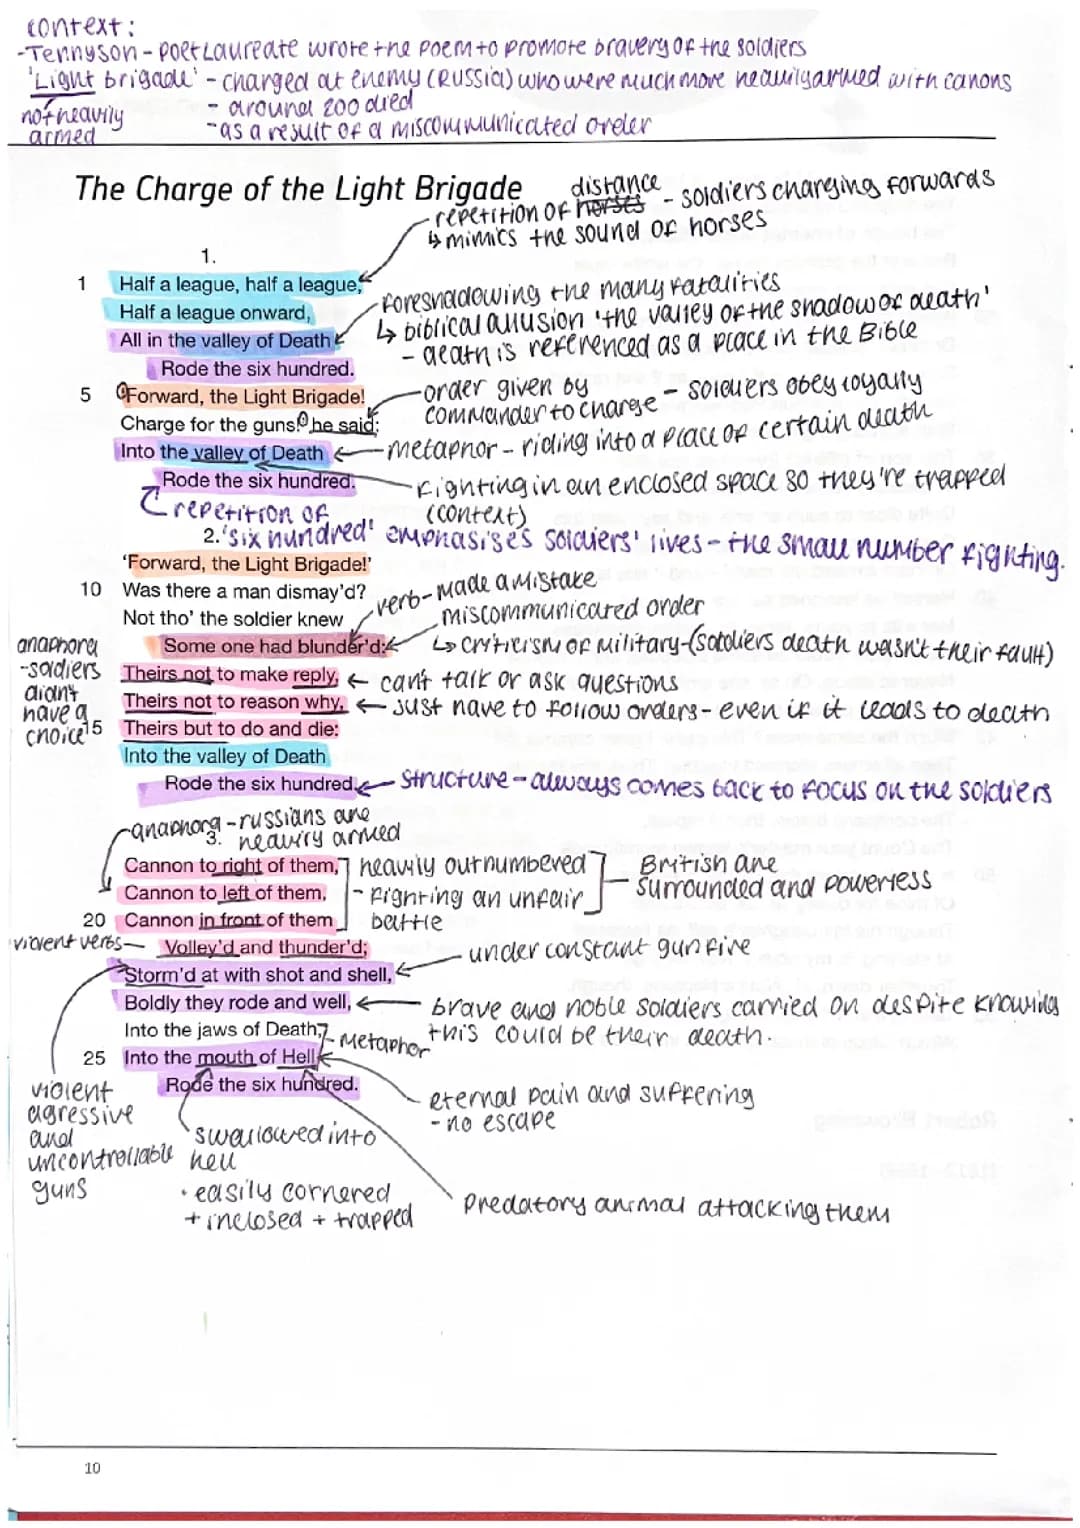 context:
-Tennyson - Poet Laureate wrote the poem to promote bravery of the soldiers
'Light brigade' - charged at enemy (Russia) who were much more heavily armed with canons
not heavily armed
- around 200 died
- as a result of a miscommunicated order
The Charge of the Light Brigade
repetition of horses distance - soldiers charging forwards
↳ mimics the sound of horses
1.
1 Half a league, half a league,
Half a league onward,
All in the valley of Death
Rode the six hundred.
foreshadowing the many fatalities
↳ biblical allusion 'the valley of the shadow of death'
- death is referenced as a place in the Bible
5 'Forward, the Light Brigade!
Charge for the guns!' he said:
Into the valley of Death
Rode the six hundred.
order given by commander to charge - soldiers obey loyally
metaphor - riding into a place of certain death
fighting in an enclosed space so they're trapped
(context)
repetition of
2. 'six hundred' emphasises soldiers' lives - the small number fighting.
'Forward, the Light Brigade!'
10 Was there a man dismay'd?
Not tho' the soldier knew
Some one had blunder'd:
verb - made a mistake
miscommunicated order
↳ criticism of military - (soldiers death wasn't their fault)
anaphora
-soldiers
didn't
have a
choice
Theirs not to make reply, ← can't talk or ask questions
Theirs not to reason why, ← just have to follow orders - even if it leads to death
15 Theirs but to do and die:
Into the valley of Death
Rode the six hundred. ← structure - always comes back to focus on the soldiers
anaphora - russians are
3. heavily armed
Cannon to right of them,
Cannon to left of them,
20 Cannon in front of them
heavily outnumbered
- fighting an unfair
battle
British are
surrounded and powerless
violent verbs -
Volley'd and thunder'd;
Storm'd at with shot and shell,
under constant gunfire
Boldly they rode and well,
brave and noble soldiers carried on despite knowing
this could be their death.
Into the jaws of Death,
25 Into the mouth of Hell
Rode the six hundred.
- Metaphor
violent
agressive
and
uncontrollable
guns
swallowed into
hell
• easily cornered
+ inclosed + trapped
eternal pain and suffering
- no escape
Predatory animal attacking them
10